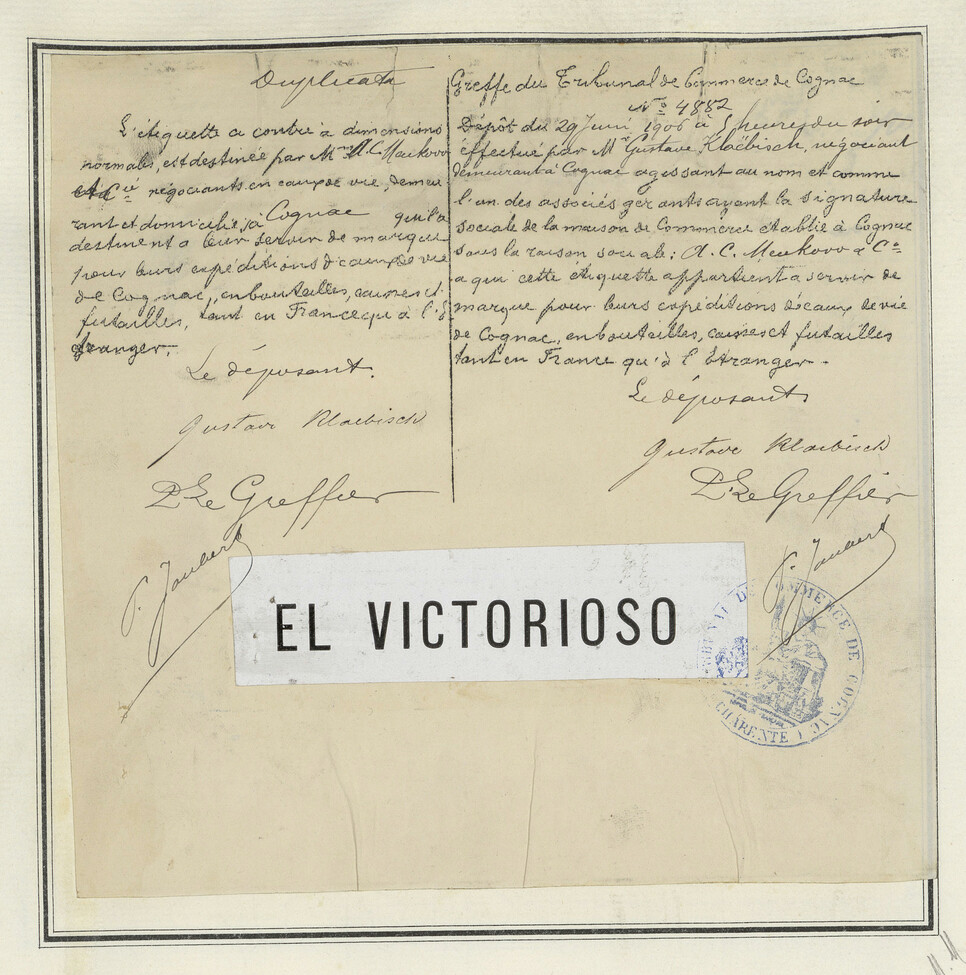 Duplicata
L'étiquette ci contre à dimensions
normales, est destinée par Mrs A. C. Meukow
et Cie négociants en eaux de vie, demeu
rant et domiciliés, à Cognac qui la
destinent a leur servir de marque
pour leurs expéditions d'eaux de vie
de Cognac, en bouteilles, caisses et
futailles, tant en France qu'à l'É
tranger.
Le déposant.
Gustave Klaebisch
P. Le Greffier
P. Joubert
Greffe du Tribunal de Commerce de Cognac
No 4882
Dépôt du 29 Juin 1906 à 5 heures du soir
effectué par Mr Gustave Klaëbisch, négociant
demeurant à Cognac agissant au nom et comme
l'un des associés gérants ayant la signature
sociale de la maison de Commerce établie à Cognac
sous la raison sociale: A. C. Meukow & Co
a qui cette étiquette appartient a servir de
marque pour leurs expéditions d'eaux de vie
de Cognac, en bouteilles, caisses et futailles
tant en France qu'à l'Etranger.
Le déposant
Gustave Klaebisch
P. Le Greffier
P. Joubert
EL VICTORIOSO
TRIBUNAL DE COMMERCE DE COGNAC
(CHARENTE)